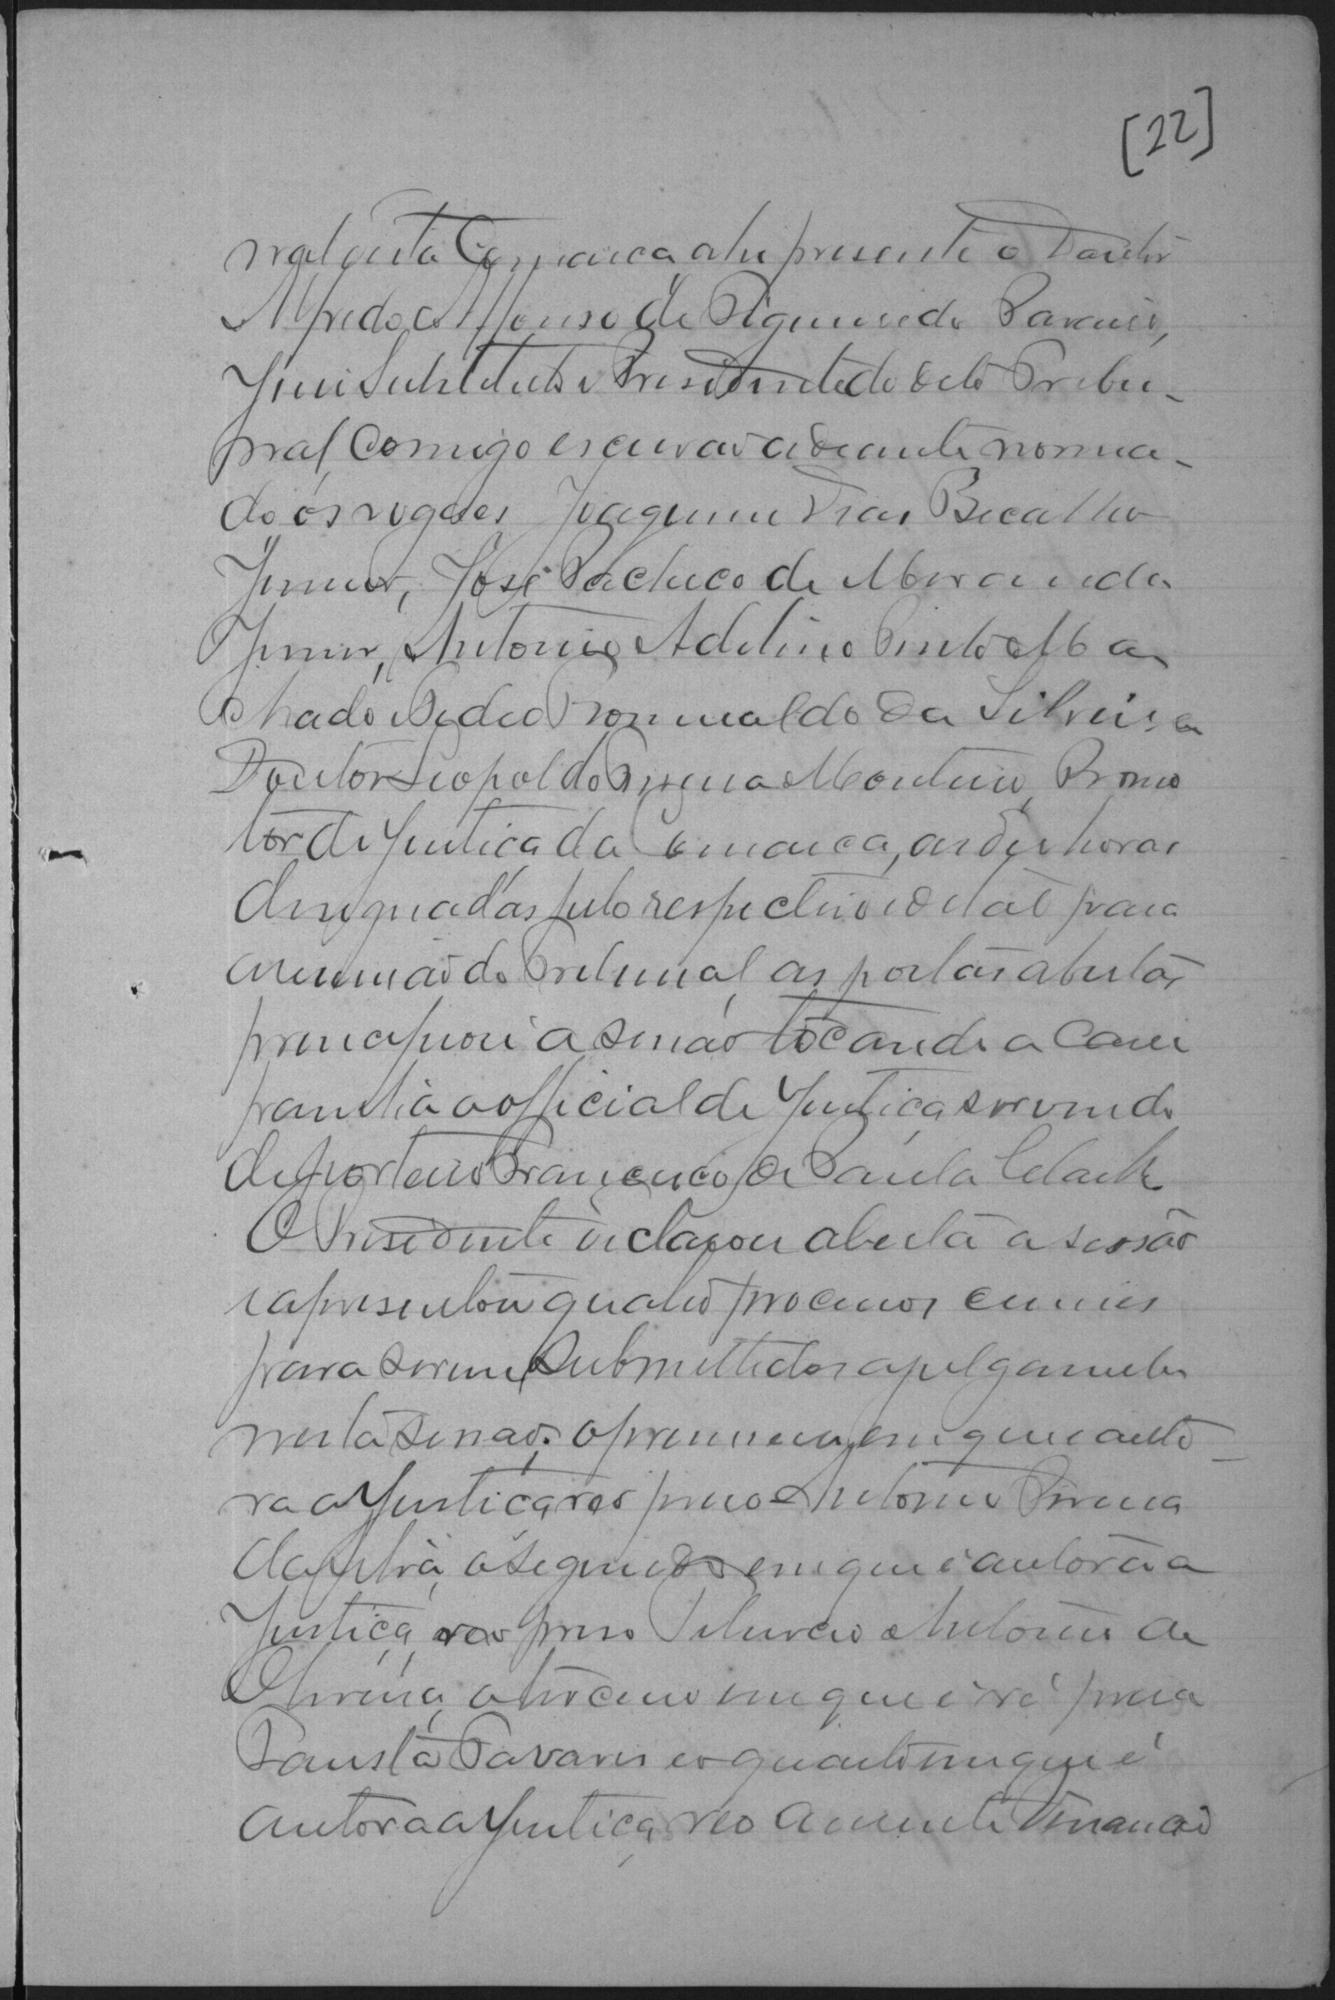 [22]
nal desta Comarca ahi presente o Doutor
Alfredo Affonso de Figueiredo
Juiz Substituto e Presidente do dito Tribu-
nal Comigo escrivão adeante nomea-
do os vogaes Joaquim Dias Bicalho
Junior, José Pacheco de Moraes da
Junior, Antonio Adelino Pinto Ma
chado e Pedro Romualdo da Silveira
Doutor Leopoldo Monteiro Promo
tor de Justiça da Comarca, as dez horas
designadas pelo respectivo edital para
a reunião do Tribunal, as portas abertas
principiou a sessão tocando a cam
painha o official de Justiça servindo
de porteiro Francisco de Paula
O Presidente declarou aberta a sessão
e apresentou quatro processos crimes
para serem submettidos a julgamento
nesta sessão: o primeiro, em que é auto-
ra a Justiça, reo preso Antonio Pereira
da Silva, o segundo em que é autora a
Justiça, reo preso Antonio de
Oliveira, o terceiro em que é ré presa
Fausta Tavares e o quarto em que é
autora a Justiça, reo ausente Venancio